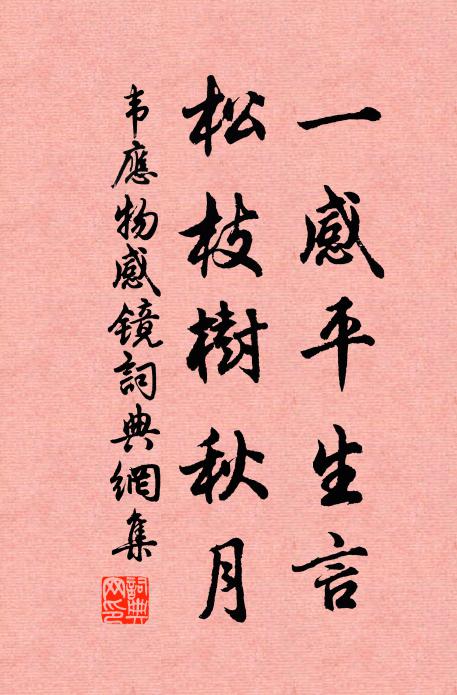 一感平生言
松枝樹秋月
韦應物感镜詞典網集
詞典网印